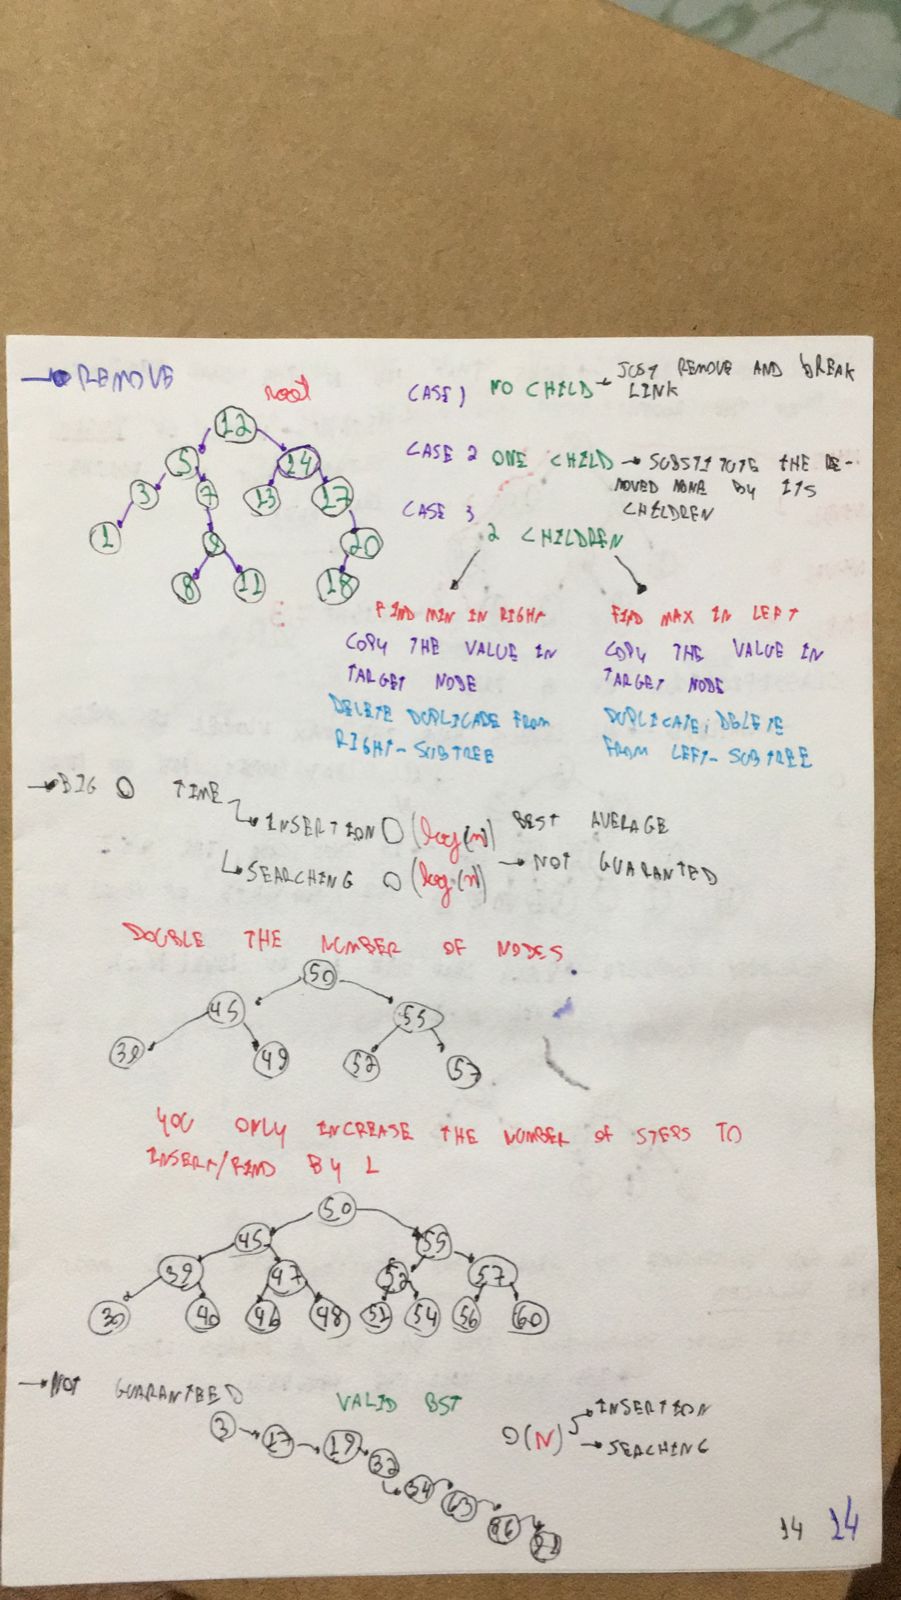 → REMOVE
root
12
5 14
3 7 13 17
1 9 20
8 11 18
CASE 1 NO CHILD → JUST REMOVE AND BREAK
LINK
CASE 2 ONE CHILD → SUBSTITUTE THE RE-
MOVED NONE BY ITS
CHILDREN
CASE 3
2 CHILDREN
FIND MIN IN RIGHT
COPY THE VALUE IN
TARGET NODE
DELETE DUPLICADE FROM
RIGHT-SUBTREE
FIND MAX IN LEFT
COPY THE VALUE IN
TARGET NODE
DUPLICATE; DELETE
FROM LEFT-SUBTREE
→ BIG O TIME
↳ INSERTION O(log(n)) BEST AVERAGE
↳ SEARCHING O(log(n)) → NOT GUARANTED
DOUBLE THE NUMBER OF NODES.
50
45 55
39 49 52 57
YOU ONLY INCREASE THE NUMBER OF STEPS TO
INSERT/FIND BY 1
50
45 55
39 47 52 57
30 40 46 48 51 54 56 60
→ NOT GUARANTEED VALID BST
3 → 17 → 19 → 32 → 54 → 63 →
O(N) → INSERTION
→ SEACHING
14 14